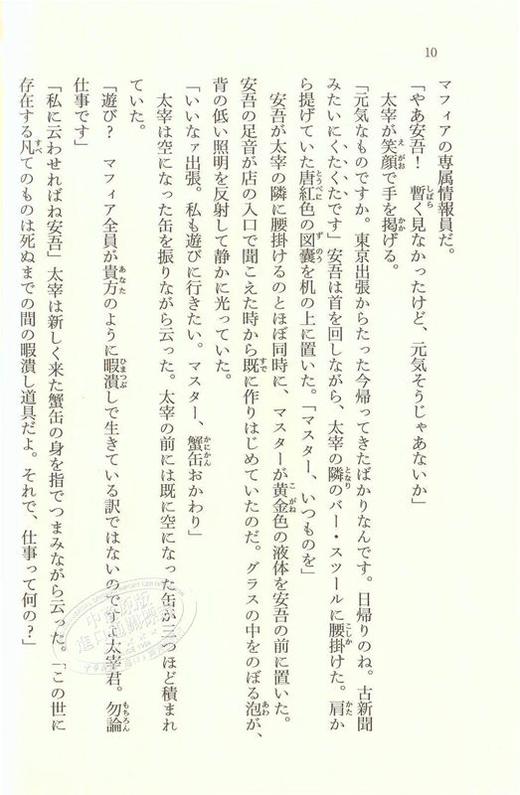 10
マフィアの専属情報員だ。
「やあ安吾！　暫く見なかったけど、元気そうじゃあないか」
太宰が笑顔で手を掲げる。
「元気なものですか。東京出張からたった今帰ってきたばかりなんです。日帰りのね。古新聞
みたいにくたくたです」安吾は首を回しながら、太宰の隣のバー・スツールに腰掛けた。肩か
ら提げていた唐紅色の図嚢を机の上に置いた。「マスター、いつものを」
安吾が太宰の隣に腰掛けるのとほぼ同時に、マスターが黄金色の液体を安吾の前に置いた。
安吾の足音が店の入口で聞こえた時から既に作りはじめていたのだ。グラスの中をのぼる泡が、
背の低い照明を反射して静かに光っていた。
「いいなァ出張。私も遊びに行きたい。マスター、蟹缶おかわり」
太宰は空になった缶を振りながら云った。太宰の前には既に空になった缶が三つほど積まれ
ていた。
「遊び？　マフィア全員が貴方のように暇潰しで生きている訳ではないのですよ太宰君。勿論
仕事です」
「私に云わせればね安吾」太宰は新しく来た蟹缶の身を指でつまみながら云った。「この世に
存在する凡てのものは死ぬまでの間の暇潰し道具だよ。それで、仕事って何の？」